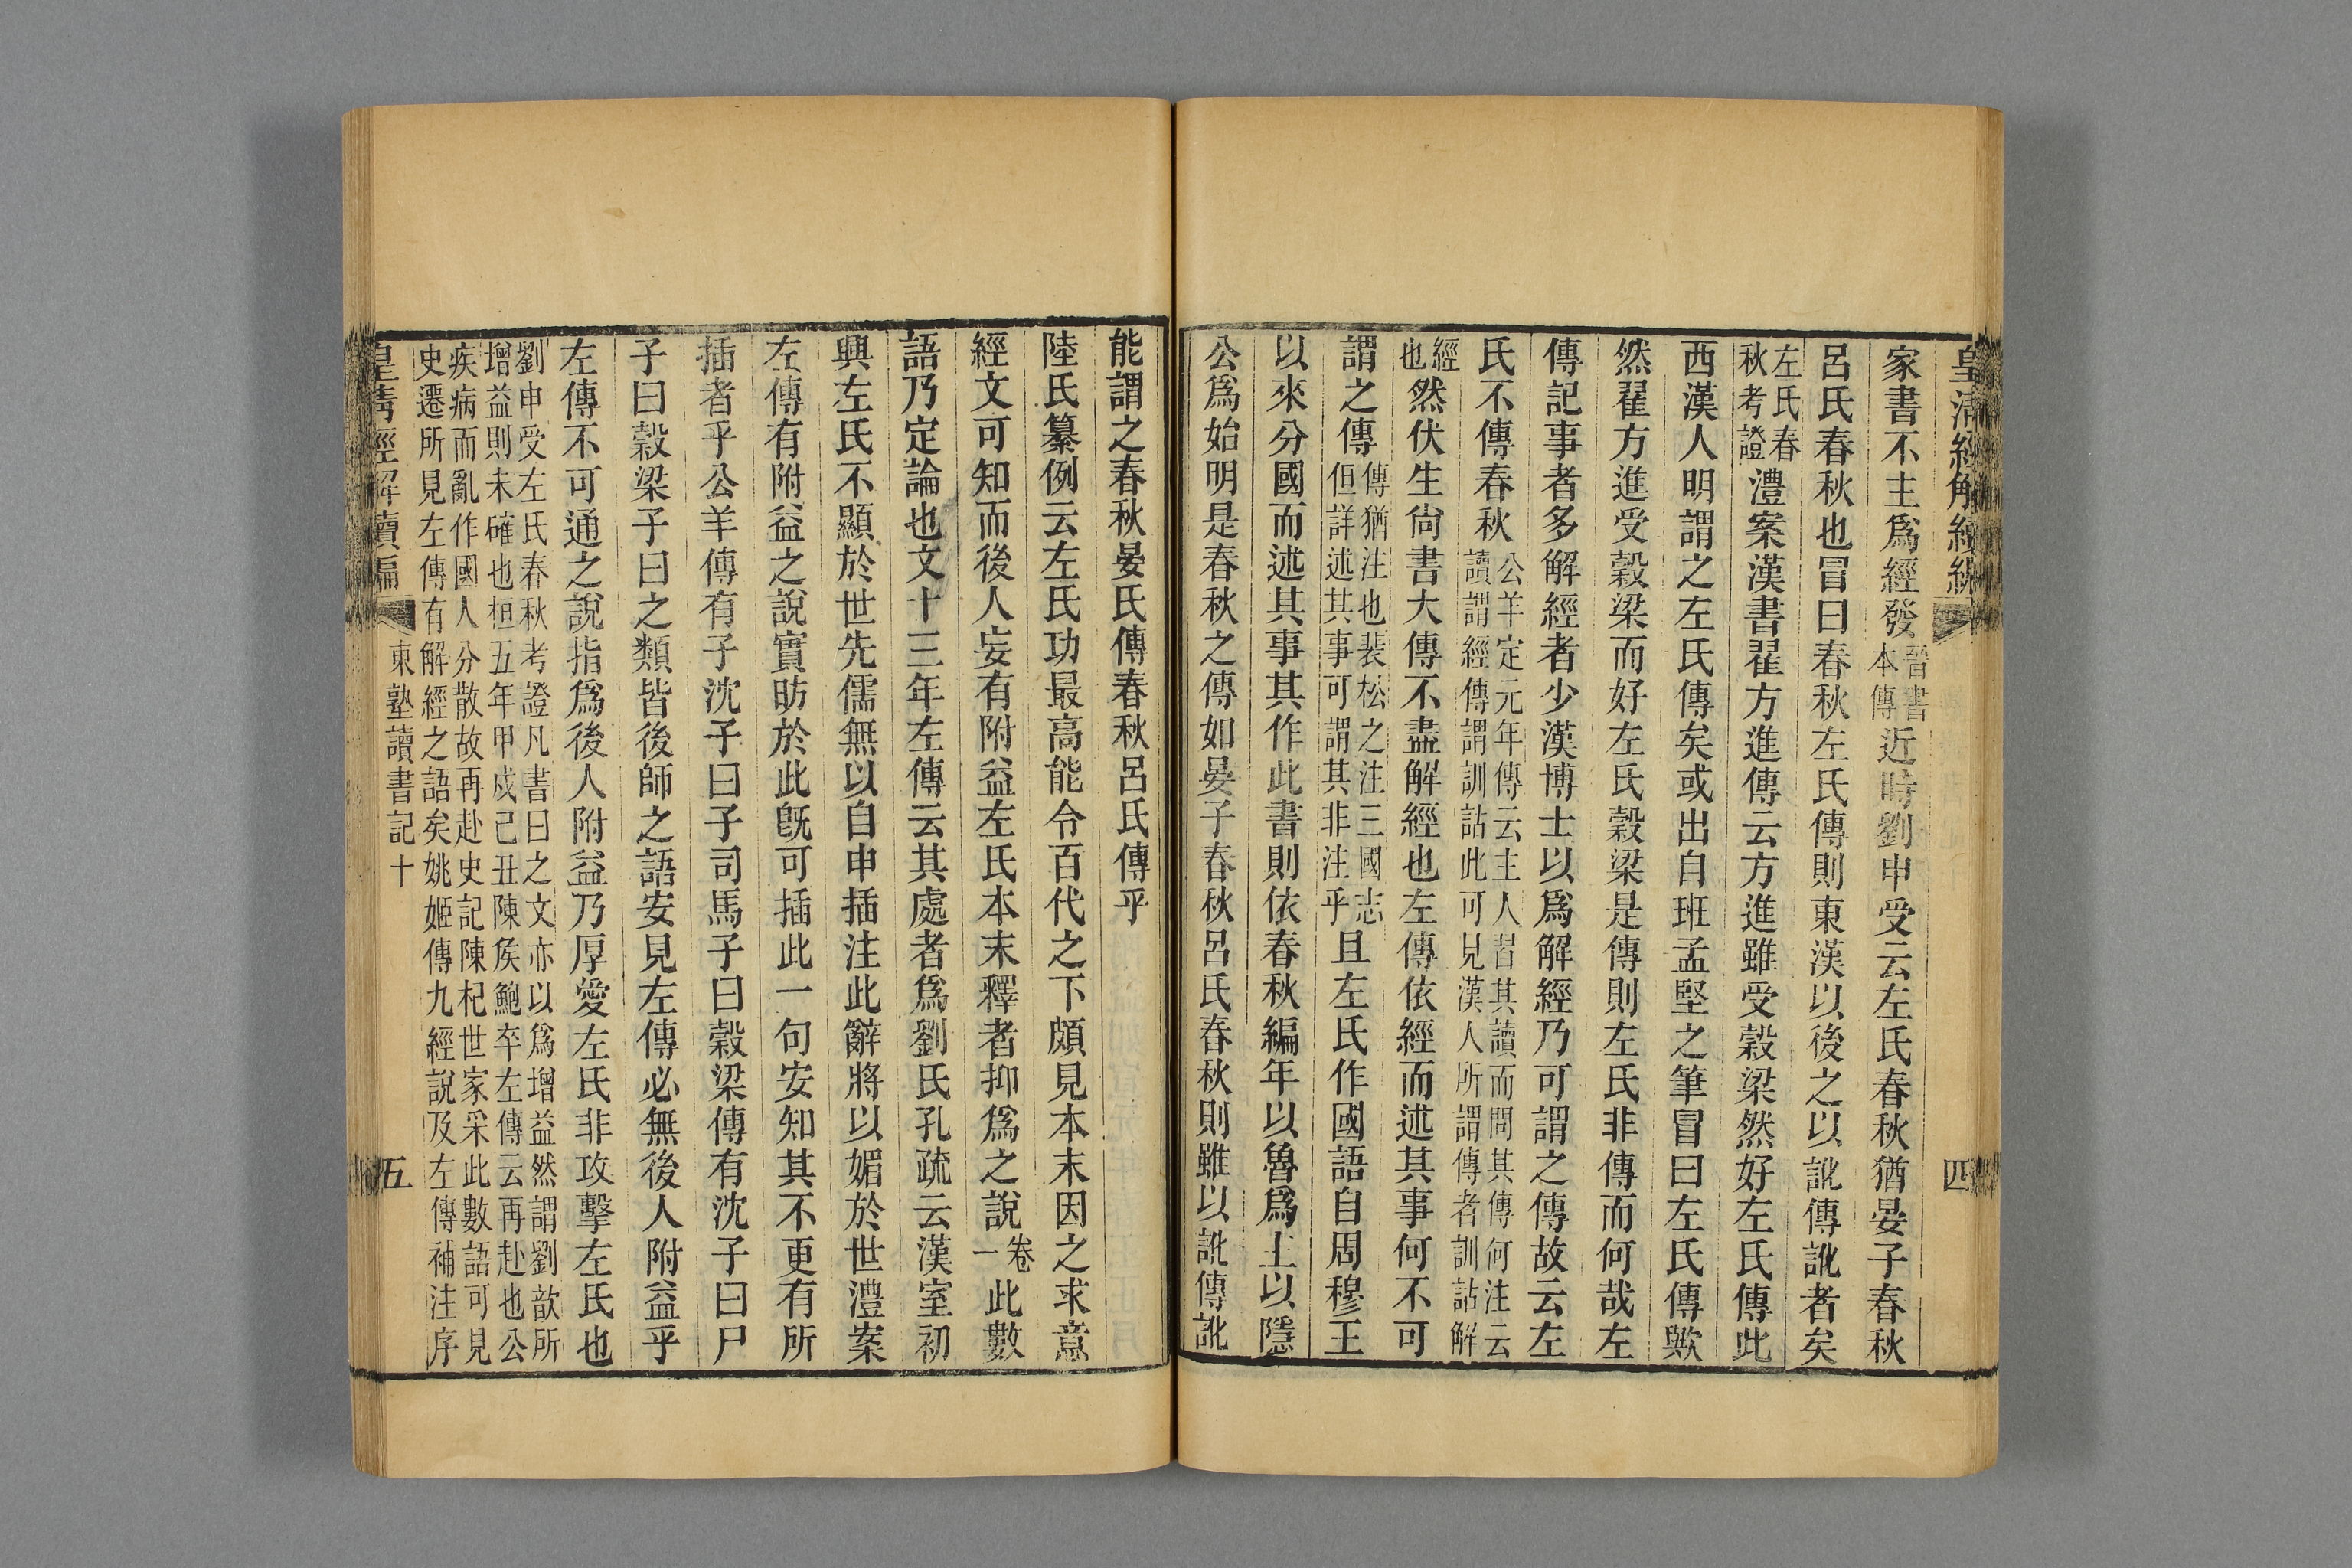 皇清經解續編
四
家書不主爲經發晉書本傳近時劉申受云左氏春秋猶晏子春秋
呂氏春秋也冒曰春秋左氏傳則東漢以後之以訛傳訛者矣
左氏春秋考證澧案漢書翟方進傳云方進雖受穀梁然好左氏傳此
西漢人明謂之左氏傳矣或出自班孟堅之筆冒曰左氏傳歟
然翟方進受穀梁而好左氏穀梁是傳則左氏非傳而何哉左
傳記事者多解經者少漢博士以爲解經乃可謂之傳故云左
氏不傳春秋公羊定元年傳云主人習其讀而問其傳何注云讀謂經傳謂訓詁此可見漢人所謂傳者訓詁解
經也然伏生尙書大傳不盡解經也左傳依經而述其事何不可
謂之傳傳猶注也裴松之注三國志但詳述其事可謂其非注乎且左氏作國語自周穆王
以來分國而述其事其作此書則依春秋編年以魯爲主以隱
公爲始明是春秋之傳如晏子春秋呂氏春秋則雖以訛傳訛
能謂之春秋晏氏傳春秋呂氏傳乎
陸氏纂例云左氏功最高能令百代之下頗見本末因之求意
經文可知而後人妄有附益左氏本末釋者抑爲之說卷一此數
語乃定論也文十三年左傳云其處者爲劉氏孔疏云漢室初
興左氏不顯於世先儒無以自申插注此辭將以媚於世澧案
左傳有附益之說實昉於此旣可插此一句安知其不更有所
插者乎公羊傳有子沈子曰子司馬子曰穀梁傳有沈子曰尸
子曰穀梁子曰之類皆後師之語安見左傳必無後人附益乎
左傳不可通之說指爲後人附益乃厚愛左氏非攻擊左氏也
劉申受左氏春秋考證凡書曰之文亦以爲增益然謂劉歆所
增益則未確也桓五年甲戌己丑陳矦鮑卒左傳云再赴也公
疾病而亂作國人分散故再赴史記陳杞世家采此數語可見
史遷所見左傳有解經之語矣姚姬傳九經說及左傳補注序
皇清經解續編
東塾讀書記十
五